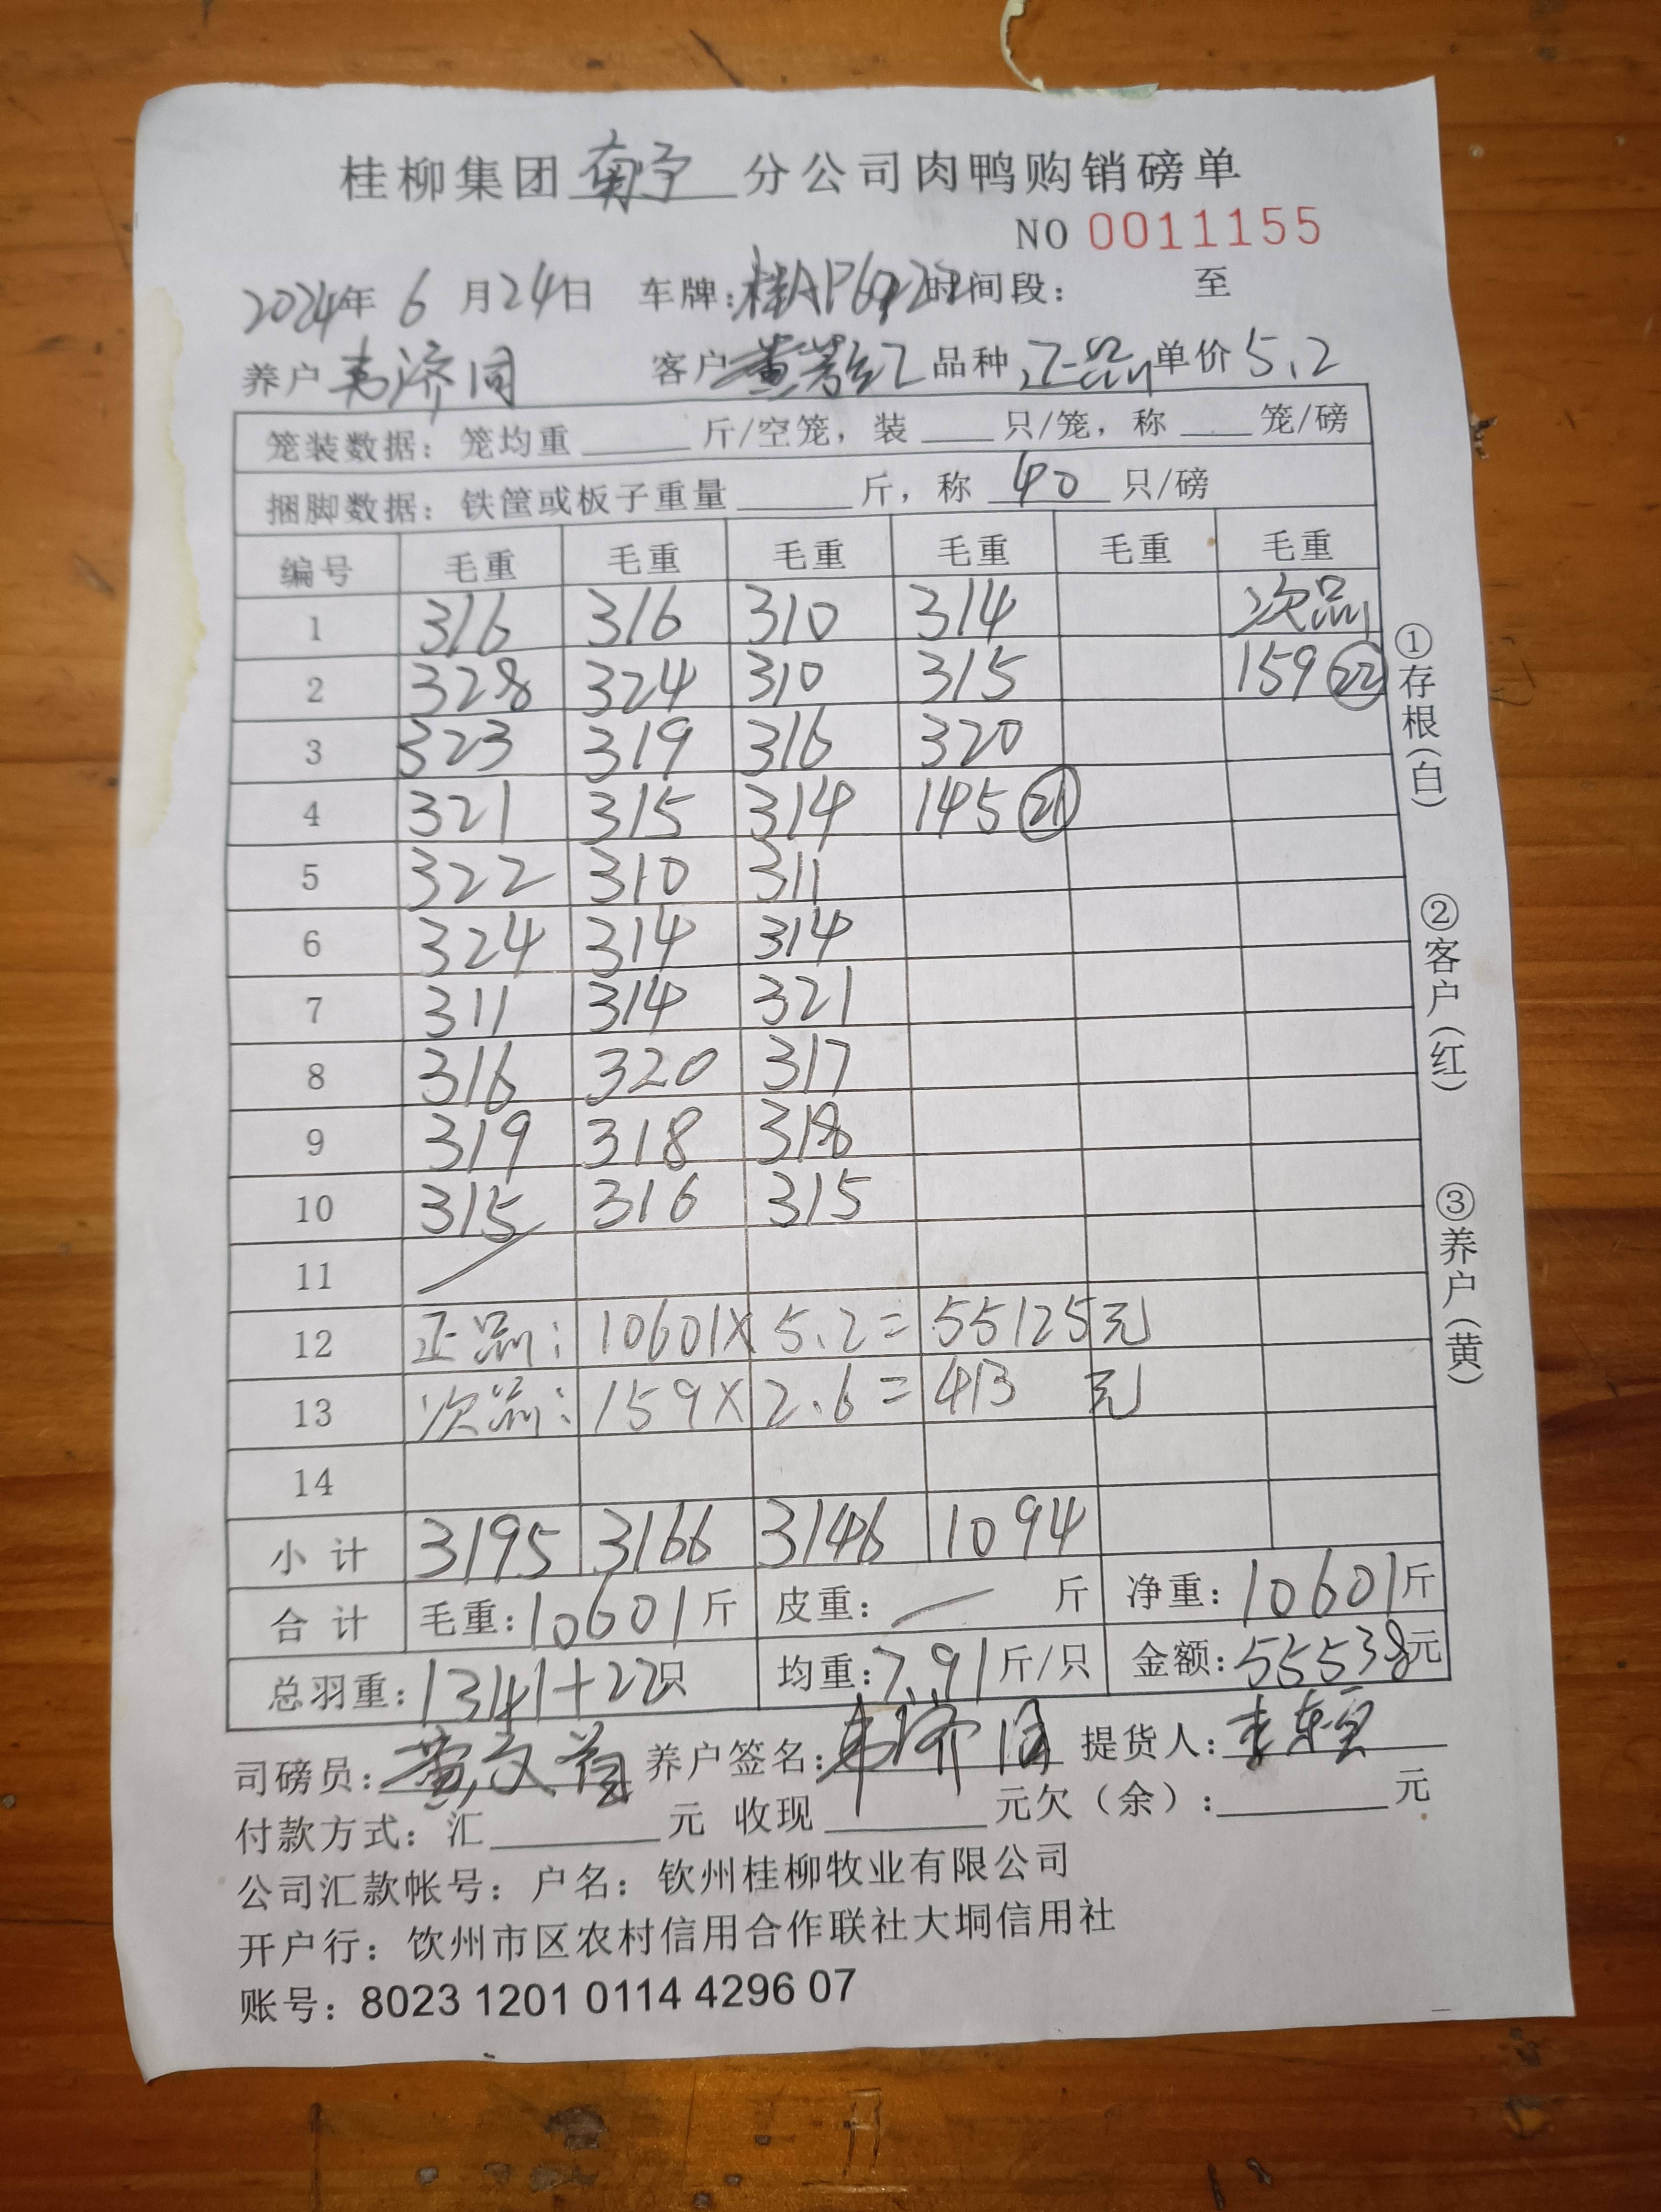 桂柳集团 南宁 分公司肉鸭购销磅单
NO 0011155
2024年 6 月24日 车牌: 时间段: 至
养户 韦济同 客户 品种 正品 单价 5.2
笼装数据: 笼均重 斤/空笼, 装 只/笼, 称 笼/磅
捆脚数据: 铁筐或板子重量 斤, 称 40 只/磅
编号 毛重 毛重 毛重 毛重 毛重 毛重
1 316 316 310 314 次品
2 328 324 310 315 159 ㉒
3 323 319 316 320
4 321 315 314 145 ㉑
5 322 310 311
6 324 314 314
7 311 314 321
8 316 320 317
9 319 318 318
10 315 316 315
11
12 正品: 10601 X 5.2 = 55125元
13 次品: 159 X 2.6 = 413 元
14
小 计 3195 3166 3146 1094
合 计 毛重: 10601 斤 皮重: — 斤 净重: 10601斤
总羽重: 1341+22只 均重: 7.91斤/只 金额: 55538元
司磅员: 养户签名: 韦济同 提货人:
付款方式: 汇 元 收现 元欠(余): 元
公司汇款帐号: 户名: 钦州桂柳牧业有限公司
开户行: 钦州市区农村信用合作联社大垌信用社
账号: 8023 1201 0114 4296 07
①存根(白)
②客户(红)
③养户(黄)